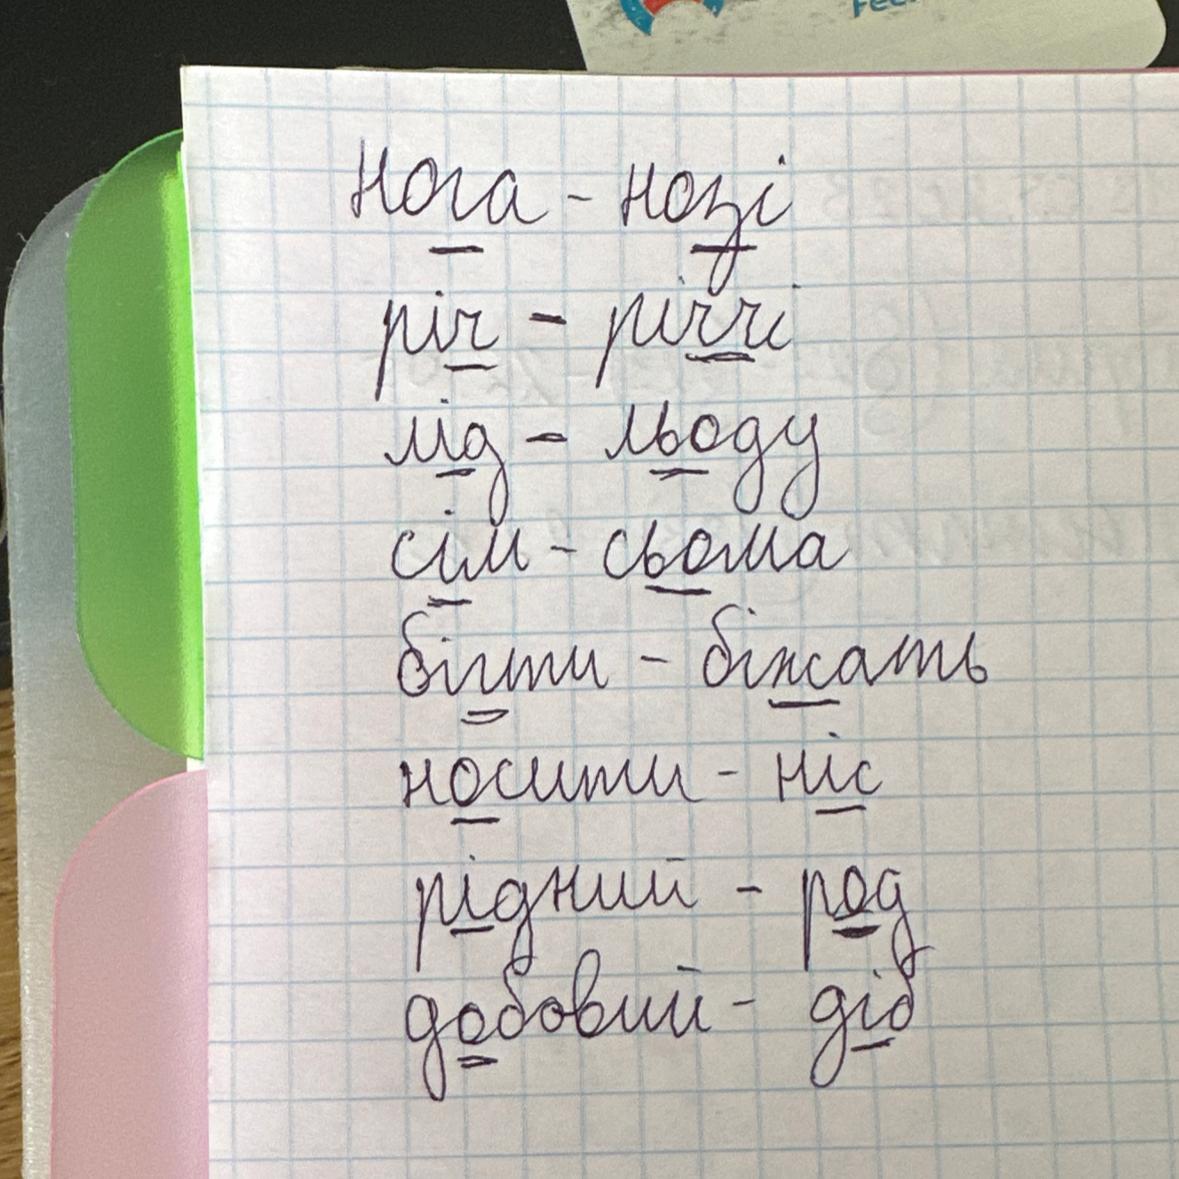 нога - нозі
річ - річчі
лід - льоду
сім - сьома
бігти - біжать
носити - ніс
рідний - род
добовий - діб